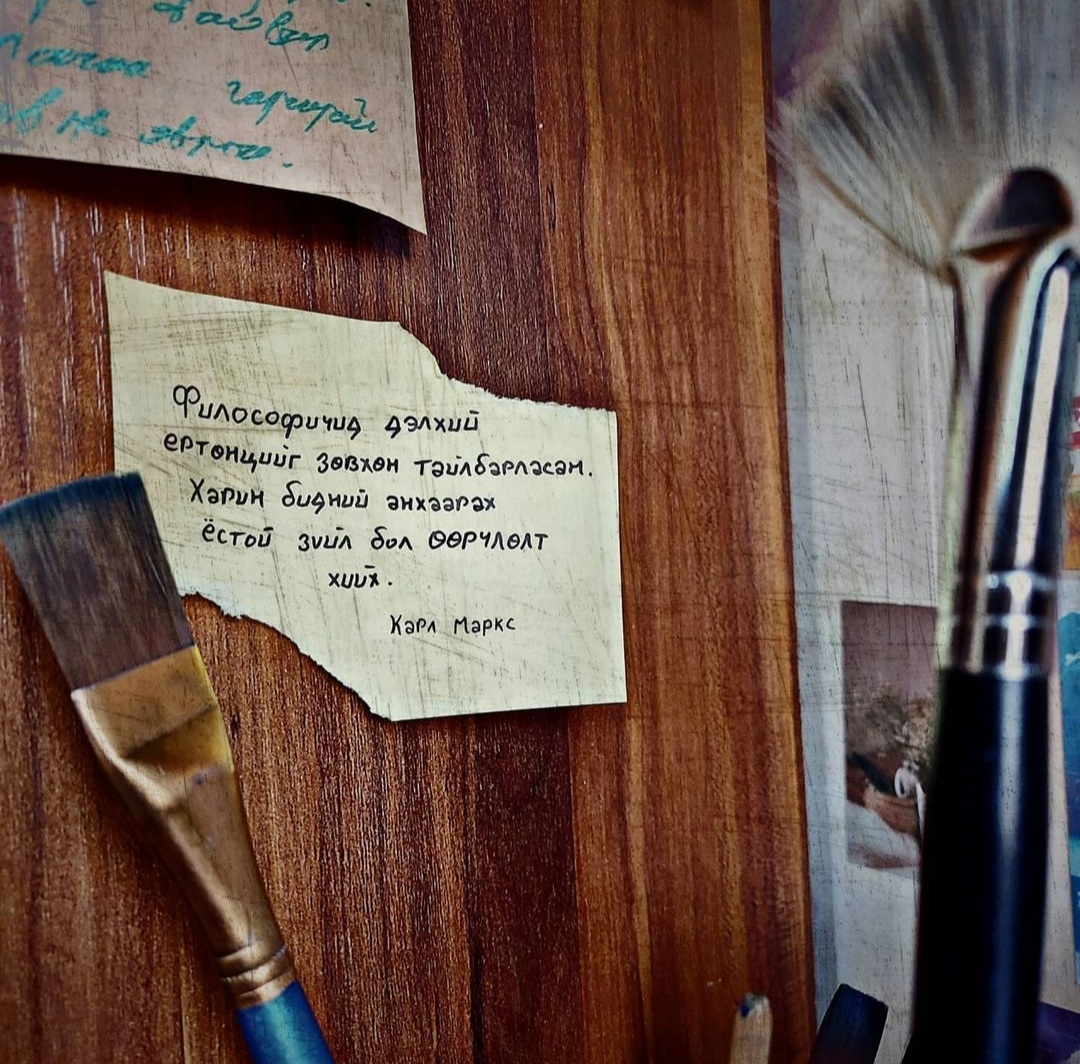 гаргуулай
Философичид дэлхий
ертөнцийг зөвхөн тайлбарласан.
Харин бидний анхаарах
ёстой зүйл бол ӨӨРЧЛӨЛТ
хийх.
Карл Маркс